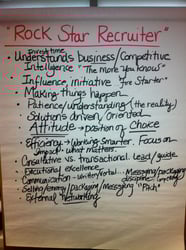 "Rock Star Recruiter"
present time
• Understands business/Competitive
Intelligence "The more you know"
• Influence, initiative "fire starter"
• Making things happen
• Patience/understanding (the reality)
• Solutions driven/oriented
• Attitude → position of choice
• Efficiency → Working Smarter. Focus on
impact - what matters.
• Consultative vs transactional. Lead/guide
• Executional excellence.
• Communication - written/verbal. Messaging/packaging
• Selling/energy/packaging/messaging "Pitch"
• External Networking